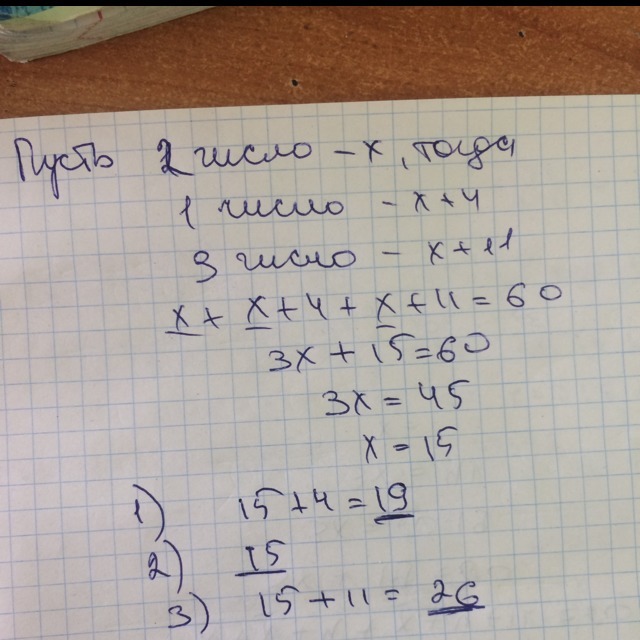 Пусть 2 число – x, тогда
1 число – x+4
3 число – x+11
x + x + 4 + x + 11 = 60
3x + 15 = 60
3x = 45
x = 15
1) 15 + 4 = 19
2) 15
3) 15 + 11 = 26